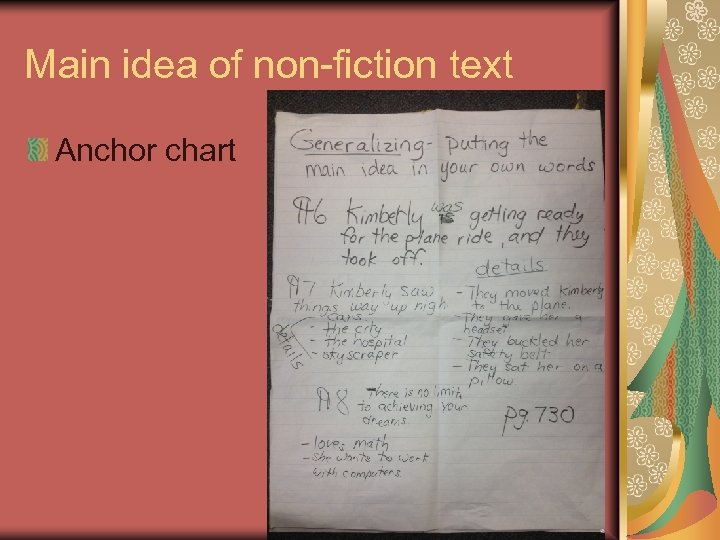 Main idea of non-fiction text
Anchor chart
Generalizing - puting the
main idea in your own words
¶6 Kimberly was getting ready
for the plane ride, and they
took off.
details
- They moved Kimberly
to the plane.
- They gave her a
headset
- They buckled her
safety belt
- They sat her on a
pillow
¶7 Kimberly saw
things way up high
details
- cars
- the city
- the hospital
- skyscraper
¶8 There is no limit
to achieving your
dreams.
- loves math
- She wants to work
with computers.
pg. 730